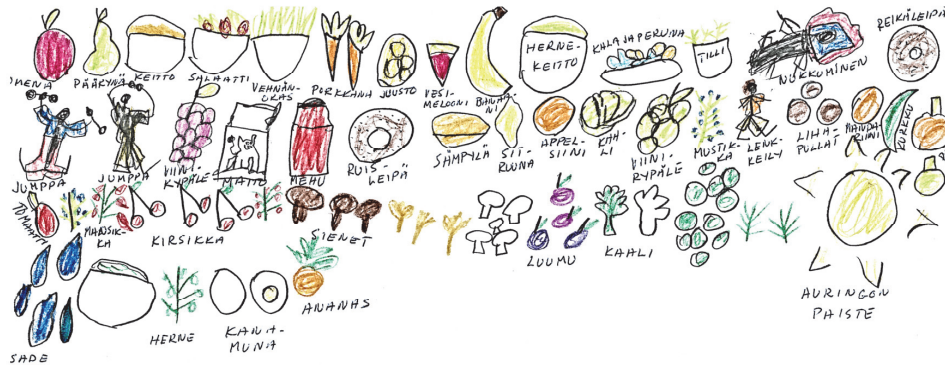 MENA
PÄÄRYNÄ
KEITTO
SALAATTI
VEHNÄN-
ORAS
PORKKANA
JUUSTO
VESI-
MELOONI
BANAA-
NI
HERNE-
KEITTO
KALAJAPERUNA
TILLI
NUKKUMINEN
REIKÄLEIPÄ
JUMPPA
JUMPPA
VIINI-
RYPÄLE
MAITO
MEHU
RUIS
LEIPÄ
SÄMPYLÄ
SIT-
RUUNA
APPEL-
SIINI
KAA-
LI
VIINI-
RYPÄLE
MUSTIK-
KA
LENK-
KEILY
LIHA-
PULLAT
MANDA-
RIINI
KURKKU
TOMAATTI
MANSIK-
KA
KIRSIKKA
SIENET
LUUMU
KAALI
AURINGON
PAISTE
SADE
HERNE
KANA-
MUNA
ANANAS